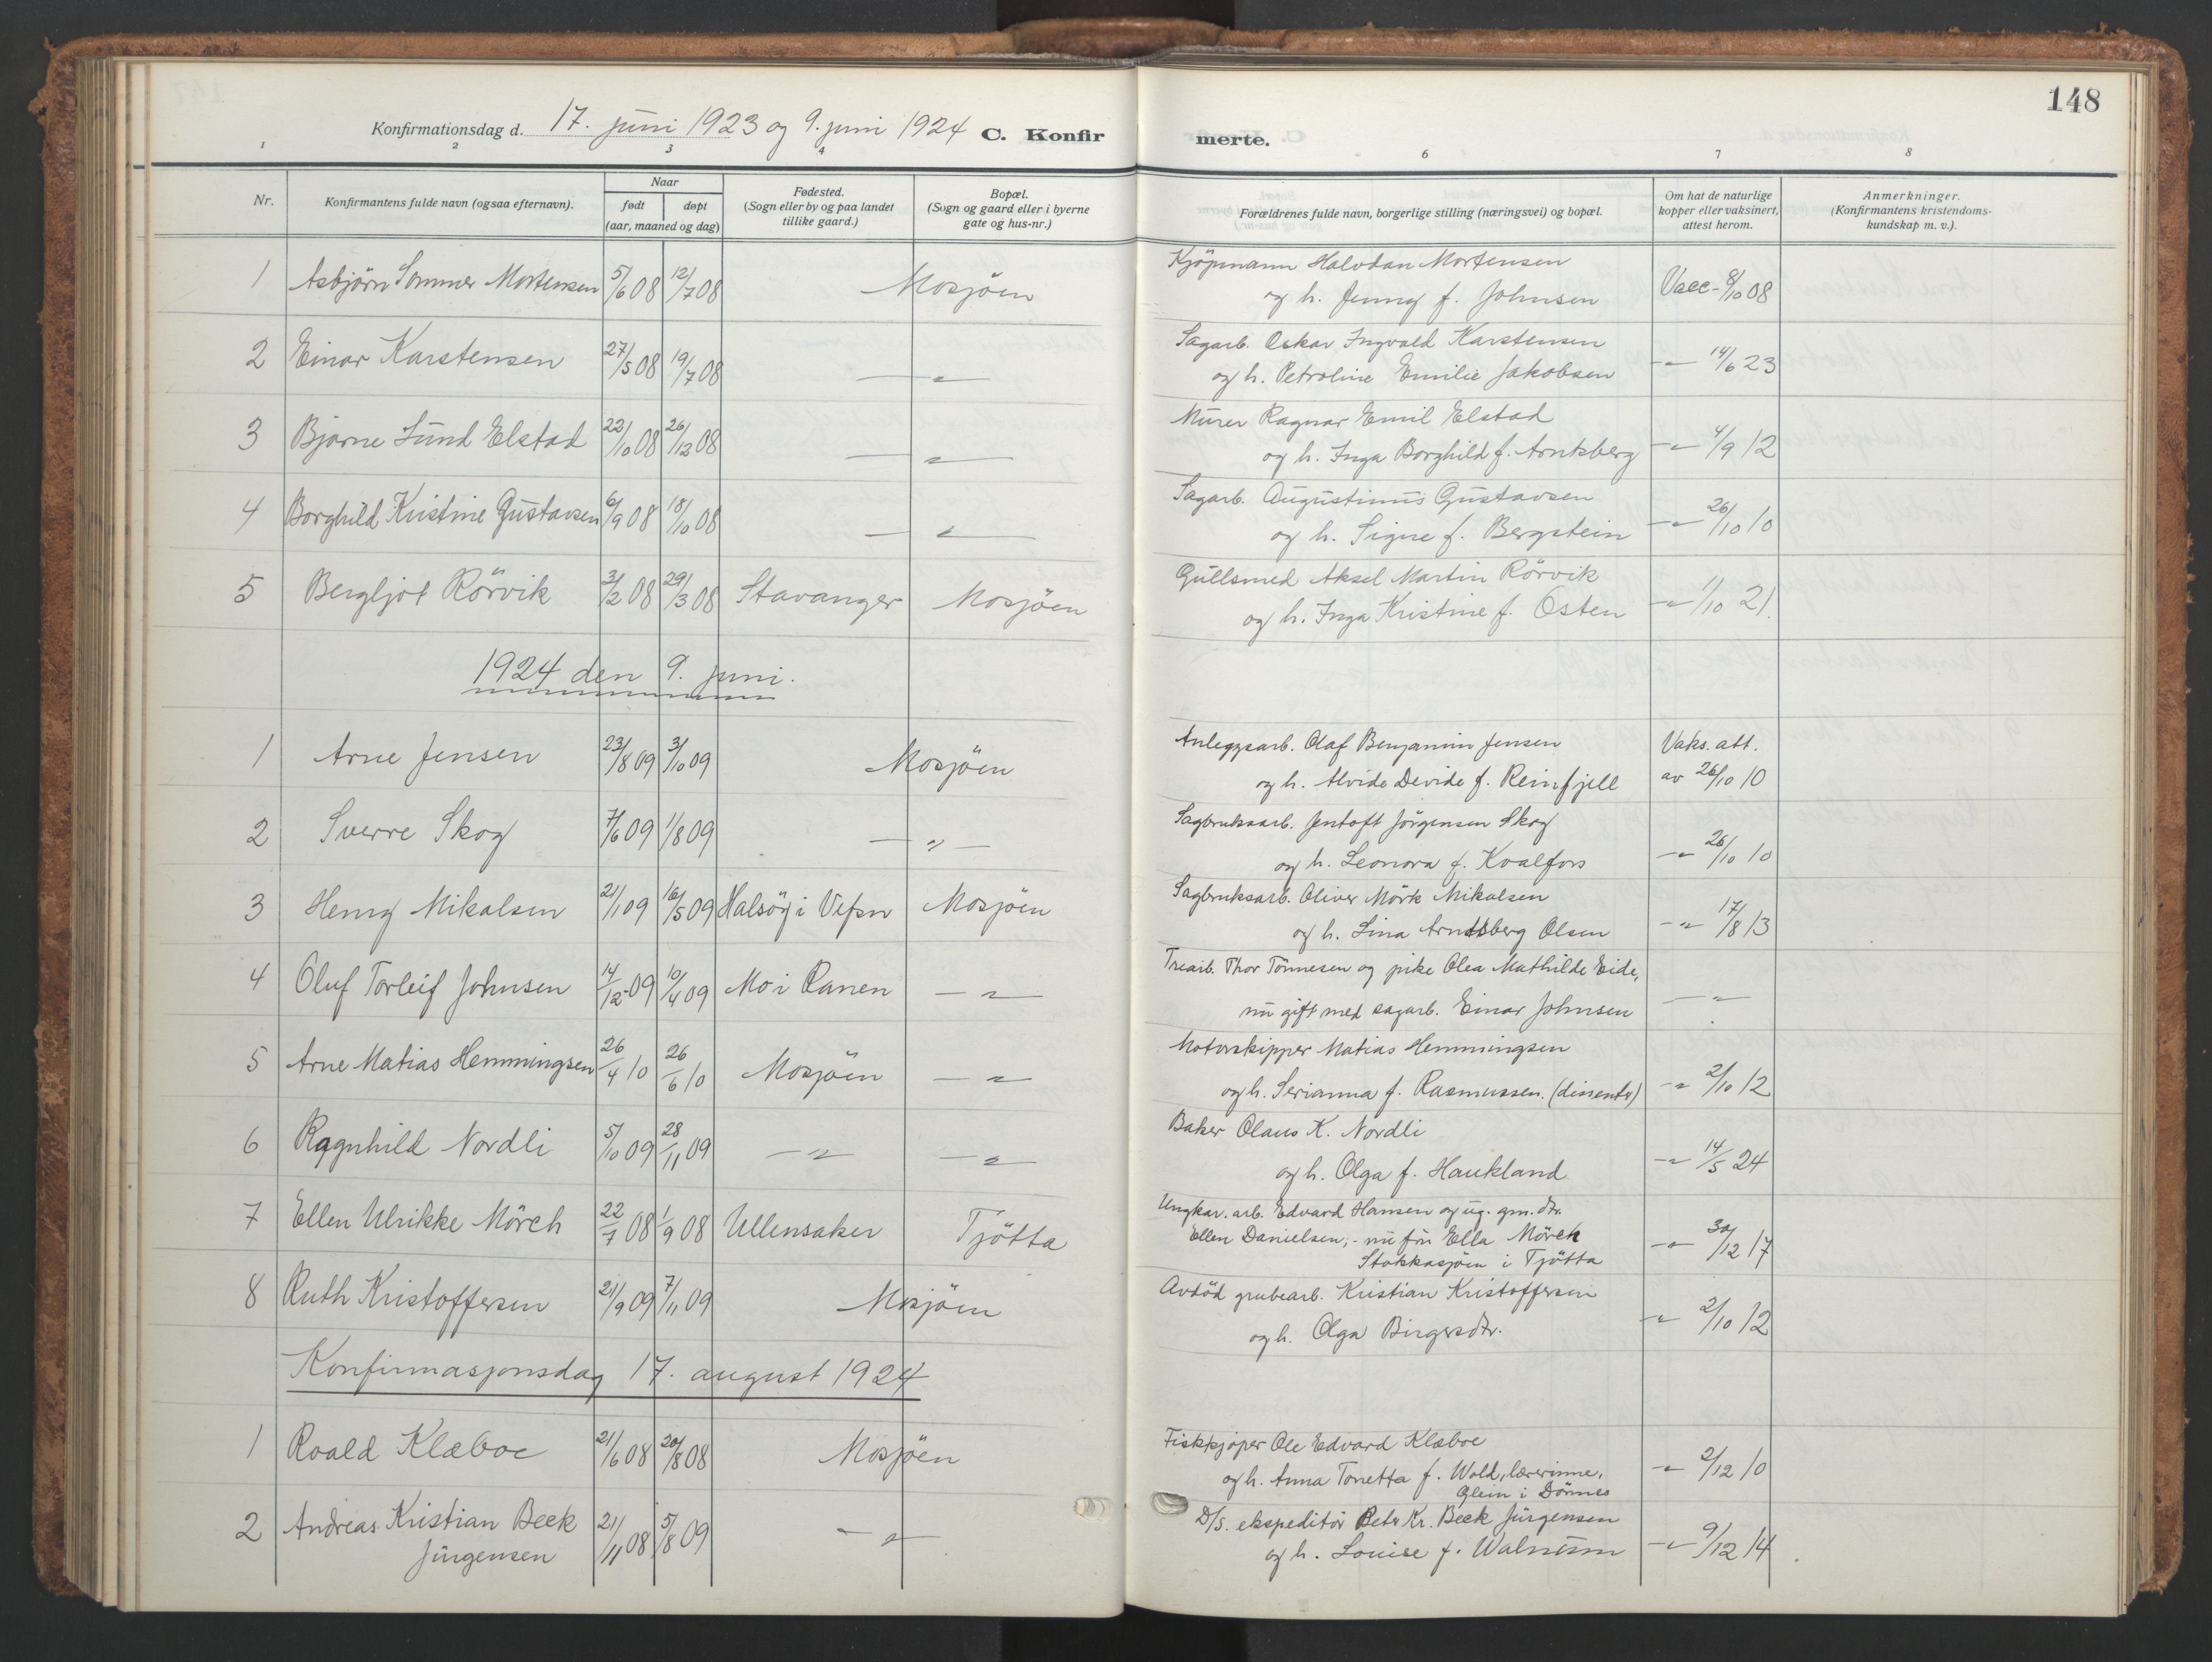 148
Konfirmationsdag d. 17. juni 1923 og 9. juni 1924 C. Konfirmerte.
1 2 3 4 6 7 8
Nr. Konfirmantens fulde navn (ogsaa efternavn). Naar født døpt (aar, maaned og dag) Fødested. (Sogn eller by og paa landet tillike gaard.) Bopæl. (Sogn og gaard eller i byerne gate og hus-nr.) Forældrenes fulde navn, borgerlige stilling (næringsvei) og bopæl. Om hat de naturlige kopper eller vaksinert, attest herom. Anmerkninger. (Konfirmantens kristendoms-kundskap m. v.).
1 Asbjörn Sommer Mortensen 5/6 08 12/7 08 Mosjöen Kjöpmann Halvdan Mortensen
og h. Jenny f. Johnsen Vacc- 8/10 08
2 Einar Karstensen 27/5 08 19/7 08 — " — Sagarb. Oskar Ingvald Karstensen
og h. Petroline Emilie Jakobsen — " 14/6 23
3 Bjarne Lund Elstad 22/10 08 26/12 08 — " — Murer Ragnar Emil Elstad
og h. Inga Borghild f. Arntsberg — " 4/9 12
4 Borghild Kristine Gustavsen 6/9 08 18/10 08 — " — Sagarb. Augustinus Gustavsen
og h. Signe f. Bergstein — " 26/10 10
5 Bergljot Rörvik 3/2 08 29/3 08 Stavanger Mosjöen Gullsmed Aksel Martin Rörvik
og h. Inga Kristine f. Osten — " 1/10 21.
1924 den 9. juni.
1 Arne Jensen 23/8 09 3/10 09 Mosjöen Anleggsarb. Olaf Benjamin Jensen
og h. Alvide Devide f. Reinfjell Vaks. att.
av 26/10 10
2 Sverre Skog 7/6 09 1/8 09 — " — Sagbruksarb. Jentoft Jörgensen Skog
og h. Leonora f. Kvalfors — " 26/10 10
3 Henry Mikalsen 21/1 09 16/5 09 Halsöy i Vefsn Mosjöen Sagbruksarb. Oliver Mörk Mikalsen
og h. Lina Arntsberg Olsen — " 17/8 13
4 Oluf Torleif Johnsen 14/12-09 10/4 09 Mo i Ranen — " Trearb. Thor Tönnesen og pike Olea Mathilde Eide,
nu gift med sagarb. Einar Johnsen — "
5 Arne Matias Hemmingsen 26/4 10 26/6 10 Mosjöen — " Motorskipper Matias Hemmingsen
og h. Serianna f. Rasmussen. (dissentr) — " 2/10 12
6 Ragnhild Nordli 5/10 09 28/11 09 — " — " Baker Olaus K. Nordli
og h. Olga f. Haukland — " 14/5 24
7 Ellen Ulrikke Mörch 22/7 08 1/9 08 Ullensaker Tjötta Ungkar. arb. Edvard Hansen og ug. gm. dtr.
Ellen Danielsen,- nu fru Ella Mörch
Stokkasjöen i Tjötta — " 30/12 17
8 Ruth Kristoffersen 21/9 09 7/11 09 Mosjöen Avdöd grubearb. Kristian Kristoffersen
og h. Olga Birgersdtr. — " 2/10 12
Konfirmasjonsdag 17. august 1924
1 Roald Klæboe 21/6 08 20/8 08 Mosjöen Fiskkjöper Ole Edvard Klæboe
og h. Anna Tonetta f. Wold, lærerinne,
Glein i Dönnes — " 2/12 10
2 Andreas Kristian Beck
Jürgensen 21/11 08 5/8 09 — " — D/S. ekspeditör Petr Kr. Beck Jürgensen
og h. Louise f. Walnum — " 9/12 14